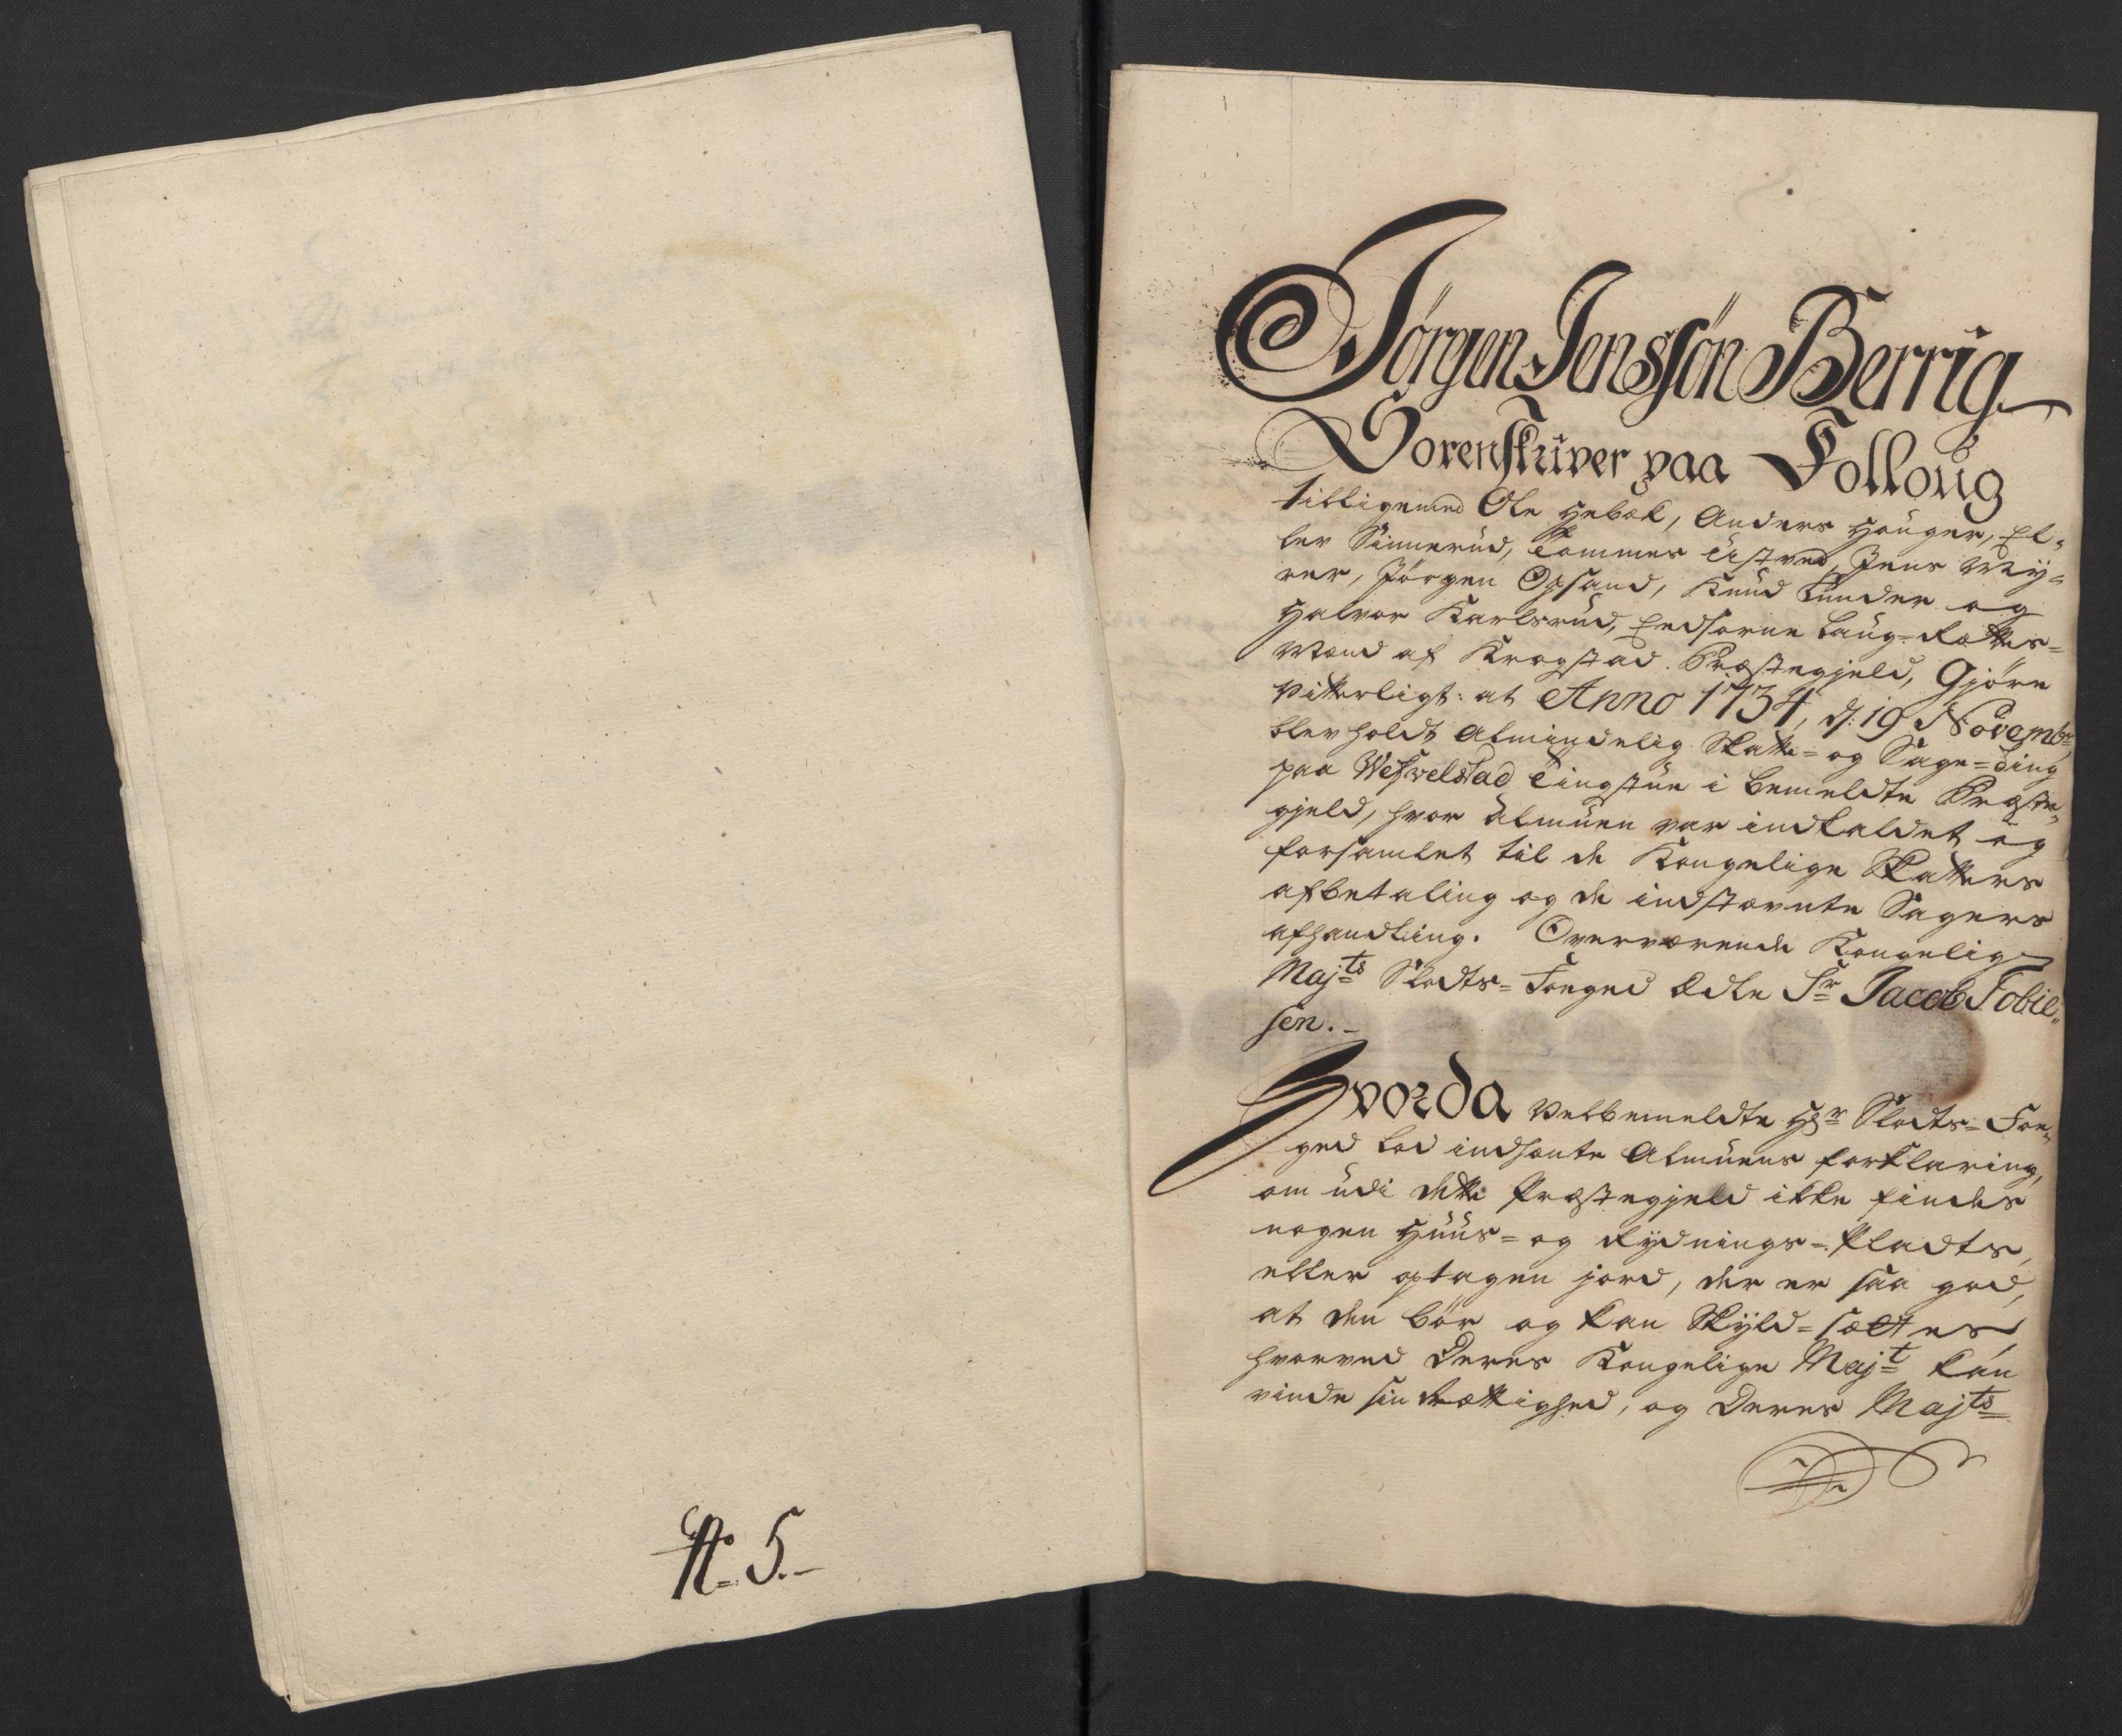 No. 5.-
Jörgen Jenssön Berrig
Sorenskriver paa Folloug
tilligemed Ole Hebæk, Anders Houger, El-
lev Sinnerud, Tommes Tistved, Jens My-
rer, Jörgen Opsand, Knud Lunder og
Halvor Karlsrud, Eedsorne Laug-Rættes-
Mænd af Krogstad Præstegjeld, Gjöre
Vitterligt: at Anno 1734, d: 19 Novembr
blev holdt Almindelig Skatte- og Sage-Ting
paa Wefvelstad Tingstue i bemeldte Præste-
gjeld, hvor Almuen var indkaldet og
forsamlet til de Kongelige Skatters
afbetaling og de indstævnte Sagers
afhandling. Overværende Kongelig
Majts Slodts-Foeged Ædle Sr Jacob Tobie-
sen.-
Hvorda Velbemeldte Hr Slodts-Foe-
ged lod indhænte Almuens forklaring,
om udi dette Præstegjeld ikke findes
nogen Huus- og Rydnings-Pladts,
eller optagen jord, der er saa god,
at den bör og kan Skyld-sættes,
hvorved Deres Kongelige Majt kan
vinde sin Rættighed, og Deres Majts